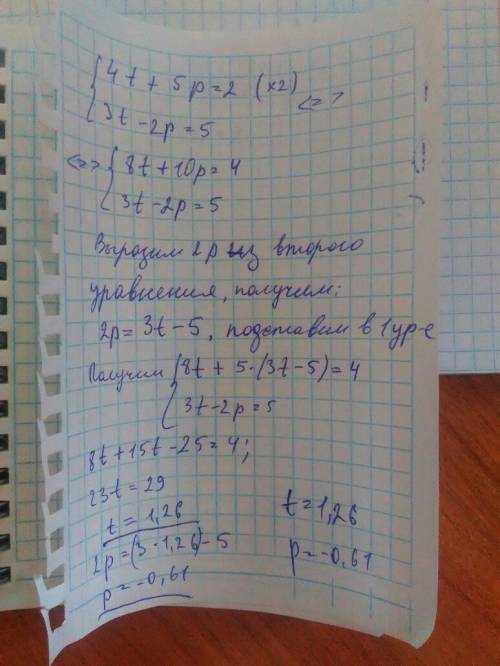 { 4t + 5p = 2 (x2)
3t - 2p = 5 <=>
<=> { 8t + 10p = 4
3t - 2p = 5
Выразим 2p из второго
уравнения, получим:
2p = 3t - 5, подставим в 1 ур-е
Получим { 8t + 5·(3t - 5) = 4
3t - 2p = 5
8t + 15t - 25 = 4;
23t = 29
t = 1,26
2p = (3·1,26) - 5
p = -0,61
t = 1,26
p = -0,61